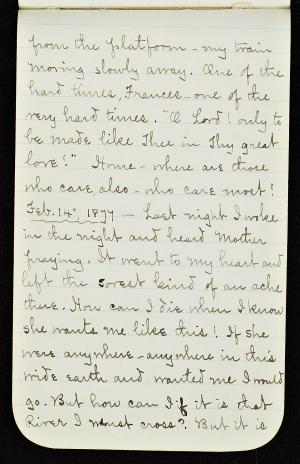 from the platform - my train
moving slowly away. One of the
hard times, Frances - one of the
very hard times. "O Lord! only to
be made like Thee in Thy great
love!" Home - where are those
who care also - who care most!
Feb. 14th, 1877 - Last night I woke
in the night and heard Mother
praying. It went to my heart and
left the sorest kind of an ache
there. How can I die when I know
she wants me like this! If she
were anywhere - anywhere in this
wide earth and wanted me I would
go. But how can I if it is that
River I must cross? But it is